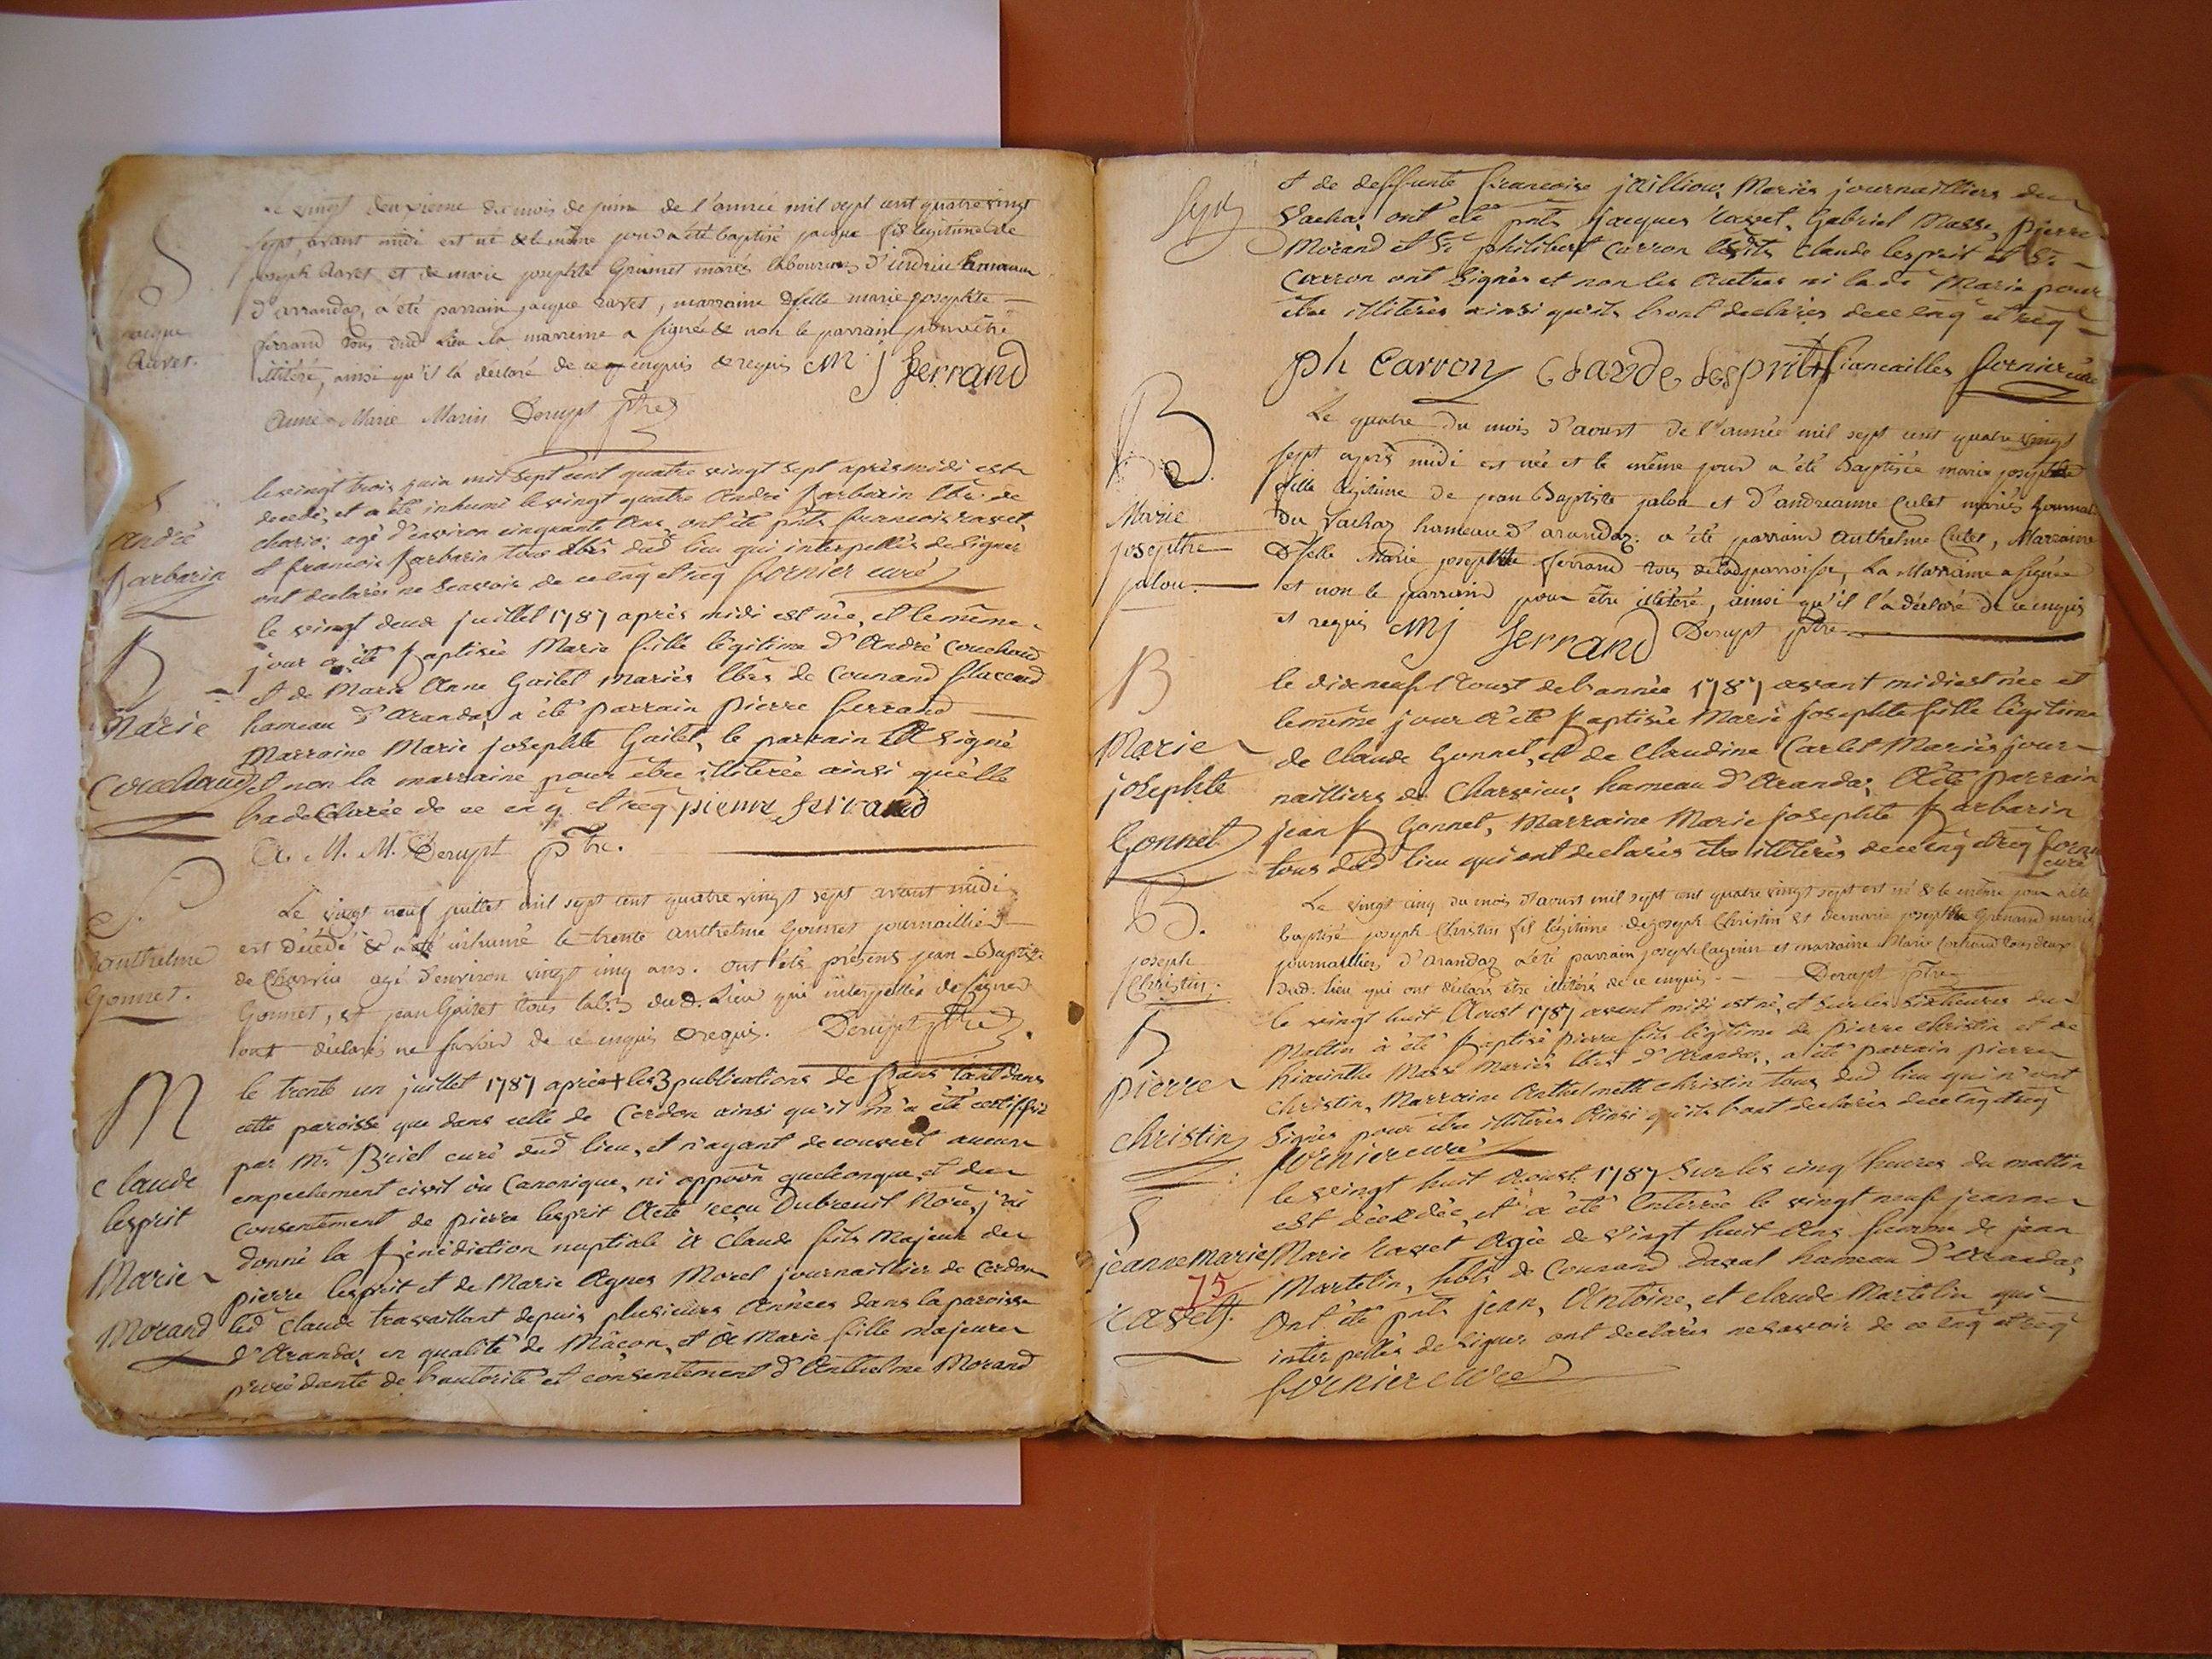 Le vingt deuxieme du mois de juin de l'année mil sept cent quatre vingt
sept avant midi est né & le même jour a été baptisé jacque fils légitime de
joseph Ravet et de marie josephte Grumet mariés laboureurs d'indrieu hameau
d'arrandaz, a été parrain jacque Ravet, marraine dselle marie josephte
ferrand tous dud. lieu la marreine a signée & non le parrain pour être
illitéré, ainsi qu'il l'a déclaré de ce enquis & requis M j ferrand
Anne Marie Marin Derupt ptre
jacque
Ravet.
le vingt trois juin mil sept cent quatre vingt sept après midi est
decedé, et a été inhumé le vingt quatre André Barbarin lbr. de
charvi; agé d'environ cinquante Ans, ont été pnts francois ravet,
et francois Barbarin tous lbrs dud lieu qui interpellés de signer
ont declarés ne scavoir de ce enq et req fornier curé
S
André
Barbarin
le vingt deux juillet 1787 après midi est née, et le même
jour a été Baptisée Marie fille légitime d'André Couchaud
et de Marie Anne Gaitet Mariés lbrs de Counand
hameau d'Arandaz, a été parrain pierre ferrand
Marraine Marie josephte Gaitet, le parrain a signé
et non la marraine pour être illiterée ainsi qu'elle
l'a declarée de ce enq et req pierre ferrand
A. M. M. Derupt ptre.
B
Marie
Couchaud
Le vingt neuf juillet mil sept cent quatre vingt sept avant midi
est décédé & a été inhumé le trente anthelme Gonnet journaillier
de Charviu agé d'environ vingt cinq ans. ont été présens jean-Baptiste
Gonnet, et jean Gaitet tous lab.rs du d. Lieu qui interpellés de signer
ont déclarés ne savoir de ce enquis & requis. Derupt ptre.
S.
anthelme
Gonnet.
le trente un juillet 1787 après les 3 publications de Bans tant dans
cette paroisse que dans celle de Cerdon ainsi qu'il m'a été certiffié
par Mr Briel curé dud lieu, et n'ayant decouvert aucun
empechement civil ou Canonique, ni oppôon quelconque, et du
consentement de pierre lesprit Acte reçu Dubreuil Nore, j'ai
donné la Bénédiction nuptiale à Claude fils Majeur de
pierre lesprit et de Marie Agnes Morel journaillier de Cerdon
led Claude travaillant depuis plusieurs Années dans la paroisse
d'Arandaz en qualité de Maçon, et à Marie fille majeure
procédante de l'autorité et consentement d'Anthelme Morand
M
Claude
lesprit
Marie
Morand
et de deffunte francoise jailliou; Mariés journailliers du
Vachaz ont été pnts jacques ravet, Gabriel Masse, pierre
Morand et Sr philibert Carron lesdts Claude lesprit et Sr
Carron ont signés et non les Autres ni lade Marie pour
être illiterés ainsi qu'ils l'ont declarés de ce enq et req
ph Carron Claude Lesprit fiancailles fornier curé
Le quatre du mois d'aoust de l'année mil sept cent quatre vingt
sept après midi est née et le même jour a été Baptisée marie josephte
fille légitime de jean Baptiste jalou et d'andréanne Culet mariés journal.
du Vachaz hameau d'arandaz. a été parrain Anthelme Culet, Marraine
Dselle Marie josephte ferrand tous de lad parroisse, La Marraine a signée
et non le parrain pour être illitéré, ainsi qu'il l'a déclaré de ce enquis
et requis M j ferrand Derupt ptre
B.
Marie
josepthe
jalou.
le dix neuf Aoust de l'année 1787 avant midi est née et
le même jour a été Baptisée Marie josephte fille légitime
de Claude Gonnet, et de Claudine Carlet Mariés jour-
nailliers de Charvieu; hameau d'Arandaz; a été parrain
jean B Gonnet, Marraine Marie josephte Barbarin
tous dud lieu qui ont declarés être illiterés de ce enq et req fornier
curé
B
Marie
josephte
Gonnet
Le vingt cinq du mois d'aoust mil sept cent quatre vingt sept est né & le même jour a été
baptisé joseph Christin fils légitime de joseph Christin et de marie josephte Grenand mariés
journailliers d'Arandaz a été parrain joseph et marraine Marie Cochaud tous deux
dud. lieu qui ont déclarés être illitérés de ce enquis - Derupt ptre
B.
joseph
Christin.
le vingt huit Aoust 1787 avant midi est né, et sur les six heures du
Mattin à été Baptisé pierre fils légitime de pierre Christin et de
hiacinthe Masse Mariés lbrs d'Arandaz, a été parrain pierre
Christin, Marraine Anthelmette Christin tous dud lieu qui n'ont
signés pour être illiterés Ainsi qu'ils l'ont declarés de ce enq et req
fornier curé
B
pierre
Christin
le vingt huit Aoust 1787 sur les cinq heures du mattin
est décédée, et a été Enterrée le vingt neuf jeanne
Marie ravet Agée de vingt huit Ans femme de jean
Martelin, lbrs de Counand davat hameau d'Arandaz
Ont été pnts jean, Antoine, et Claude Martelin qui
interpellés de signer ont declarés ne savoir de ce enq et req
fornier curé
S
jeanne marie
75
ravet.